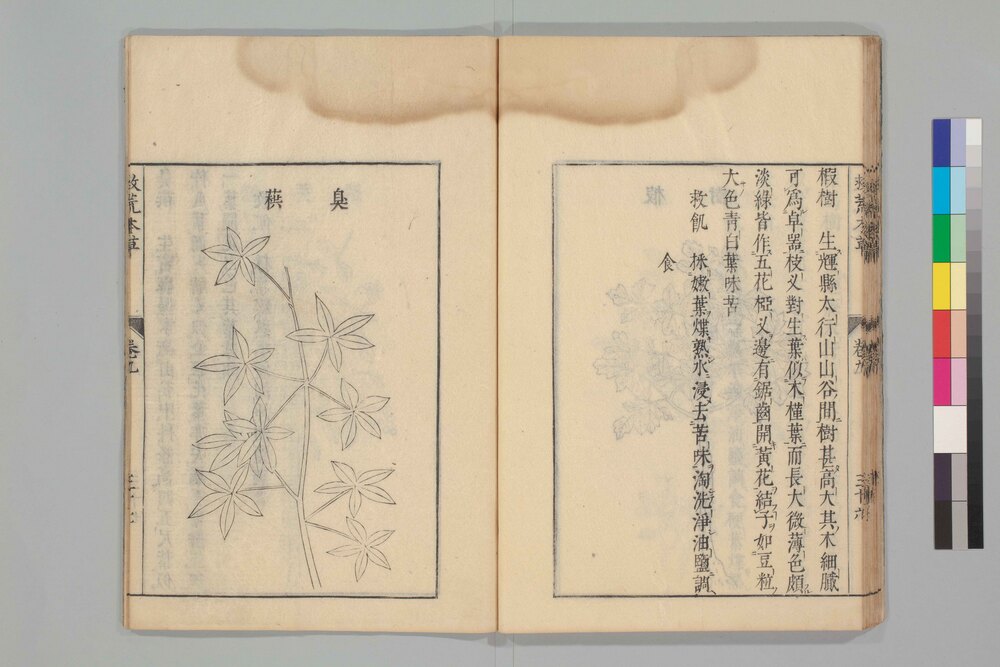 椵樹 生輝縣太行山山谷間樹甚高大其木細膩
可爲卓器枝叉對生葉似木槿葉而長大微薄色頗
淡綠皆作五花椏叉邊有鋸齒開黃花結子如豆粒
大色青白葉味苦
救飢 採嫩葉煠熟水浸去苦味淘洗淨油鹽調
食
臭
救荒本草
卷九